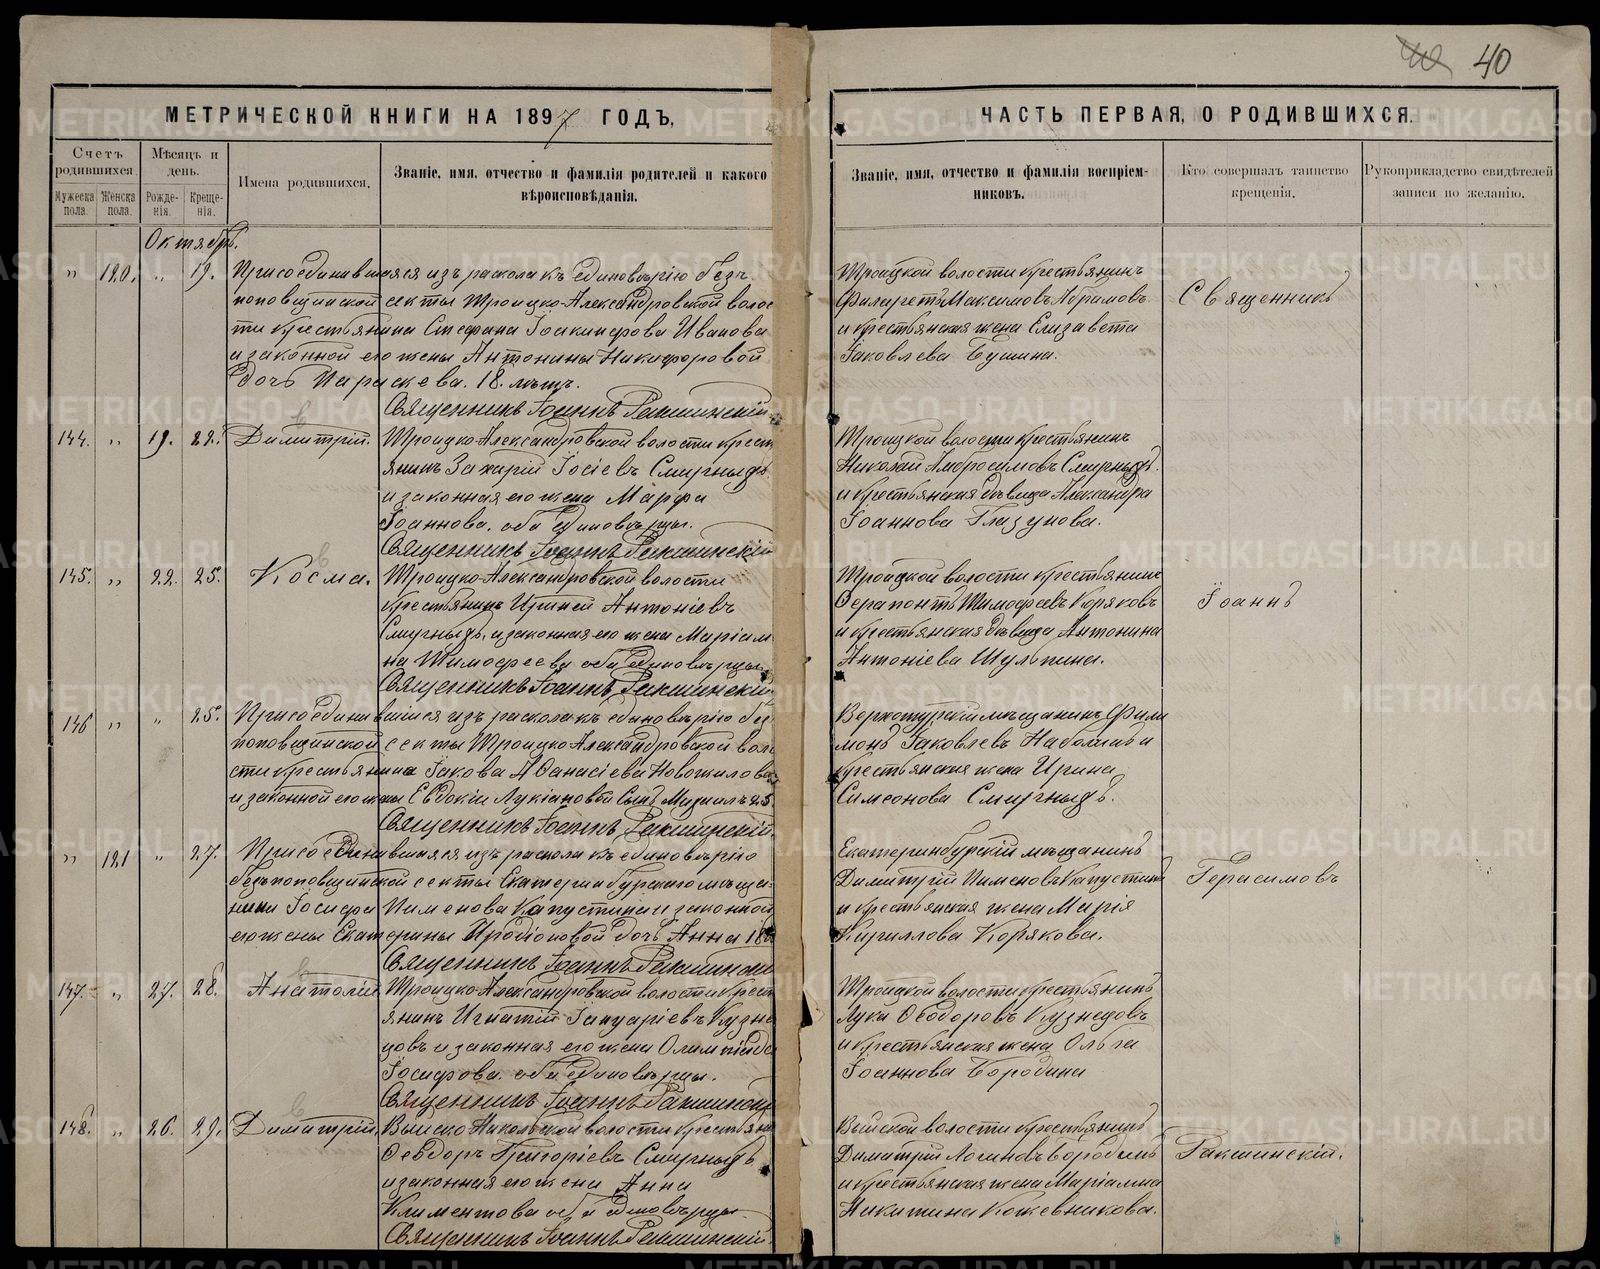 40 40
МЕТРИЧЕСКОЙ КНИГИ НА 1897 ГОДЪ,
Счетъ родившихся.
Мѣсяцъ и день.
Мужеска пола.
Женска пола.
Рожденія.
Крещенія.
Имена родившихся.
Званіе, имя, отчество и фамилія родителей и какого
вѣроисповѣданія.
Октябрь.
" 120. " 19. Присоединившаяся изъ раскола къ единовѣрію без
поповщинской секты Троицко-Александровской волос
ти крестьянина Стефана Іоакинфова Иванова
и законной его жены Антонины Никифоровой
дочь Параскева. 18. лѣтъ.
Священникъ Іоаннъ Ракшинскій.
144. " 19. 22. Димитрій. Троицко-Александровской волости крест
янинъ Захарій Іосіевъ Смирныхъ
и законная его жена Марфа
Іоаннова, оба единовѣрцы.
Священникъ Іоаннъ Ракшинскій
145. " 22. 25. Косма. Троицко-Александровской волости
крестьянинъ Ириней Антоніевъ
Смирныхъ, и законная его жена Маріам
на Тимофеева оба единовѣрцы.
Священникъ Іоаннъ Ракшинскій
146 " " 25. Присоединившійся изъ раскола къ единовѣрію без
поповщинской секты Троицко-Александровской воло
сти крестьянина Іакова Аѳанасіева Новожилова
и законной его жены Евдокіи Лукіановой Сынъ Михаилъ 25
Священникъ Іоаннъ Ракшинскій.
" 121 " 27. Присоединившаяся изъ раскола къ единовѣрію
безпоповщинской секты Екатеринбургскаго мѣща-
нина Іосифа Пименова Капустина и законной
его жены Екатерины Иродіоновой дочь Анна 18
Священникъ Іоаннъ Ракшински
147. " 27. 28. Анатолій Троицко-Александровской волости крест
янинъ Игнатій Іануаріевъ Кузне
цовъ и законная его жена Олимпіада
Іосифова. оба единовѣрцы.
Священникъ Іоаннъ Ракшински
148. " 26. 29. Димитрій. Выйско-Никольской волости крестьяни
Ѳеодоръ Григоріевъ Смирныхъ
и законная его жена Анна
Климентова оба единовѣрцы.
Священникъ Іоаннъ Ракшинскій.
ЧАСТЬ ПЕРВАЯ, О РОДИВШИХСЯ.
Званіе, имя, отчество и фамилія воспріем-
никовъ.
Кто совершалъ таинство
крещенія.
Рукоприкладство свидѣтелей
записи по желанію.
Троицкой волости крестьянинъ
Филаретъ Максимовъ Абрамовъ
и крестьянская жена Елизавета
Іаковлева Бушина.
Троицкой волости крестьянинъ
Николай Амбросимовъ Смирныхъ.
и крестьянская дѣвица Александра
Іоаннова Глазунова.
Троицкой волости крестьянинъ
Ѳерапонтъ Тимофеевъ Коряковъ
и крестьянская дѣвица Антонина
Антоніева Шульпина.
Верхотурскій мѣщанинъ Фили
монъ Іаковлевъ и
крестьянская жена Ирина
Симеонова Смирныхъ.
Екатеринбурскій мѣщанинъ
Димитрій Пименовъ Капустинъ
и крестьянская жена Марія
Кириллова Корякова.
Троицкой волости крестьянинъ
Лука Ѳеодоровъ Кузнецовъ
и крестьянская жена Ольга
Іоаннова Бородина
Выйской волости крестьянинъ
Димитрій Логиновъ Бородинъ
и крестьянская жена Маріамна
Никитина Кожевникова.
Священникъ
Іоаннъ
Герасимовъ
Ракшинскій.
METRIKI.GASO-URAL.RU